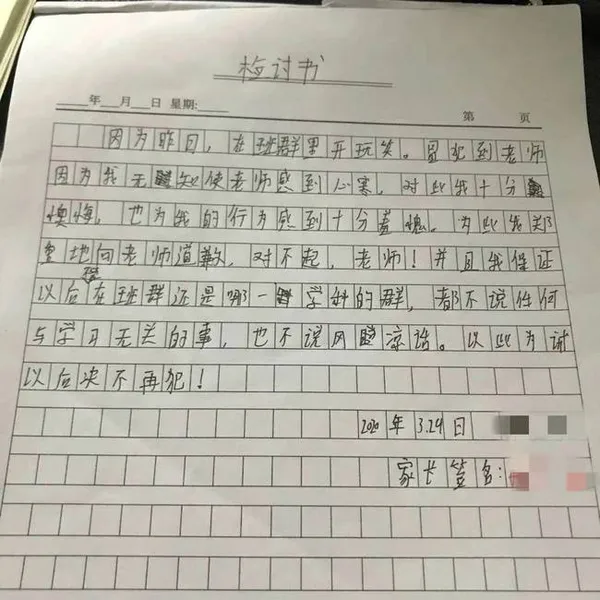 检讨书
年 月 日 星期: 第 页
因为昨日，在班群里开玩笑。冒犯到老师
因为我无知使老师感到心寒，对此我十分
懊悔，也为我的行为感到十分羞愧。为此我郑
重地向老师道歉，对不起，老师！并且我保证
以后在班群还是哪一学科的群，都不说任何
与学习无关的事，也不说风凉话。以此为诫
以后决不再犯！
2020年3.24日
家长签名: